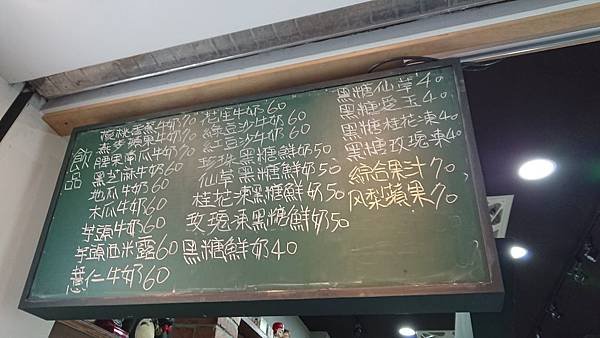 飲品
核桃蛋蜜牛奶70
燕麥蘋果牛奶70
腰果南瓜牛奶70
黑芝麻牛奶60
地瓜牛奶60
木瓜牛奶60
芋頭牛奶60
芋頭西米露60
薏仁牛奶60
花生牛奶60
綠豆沙牛奶60
紅豆沙牛奶60
珍珠黑糖鮮奶50
仙草黑糖鮮奶50
桂花凍黑糖鮮奶50
玫瑰凍黑糖鮮奶50
黑糖鮮奶40
黑糖仙草40
黑糖愛玉40
黑糖桂花凍40
黑糖玫瑰凍40
綜合果汁70
风梨蘋果70